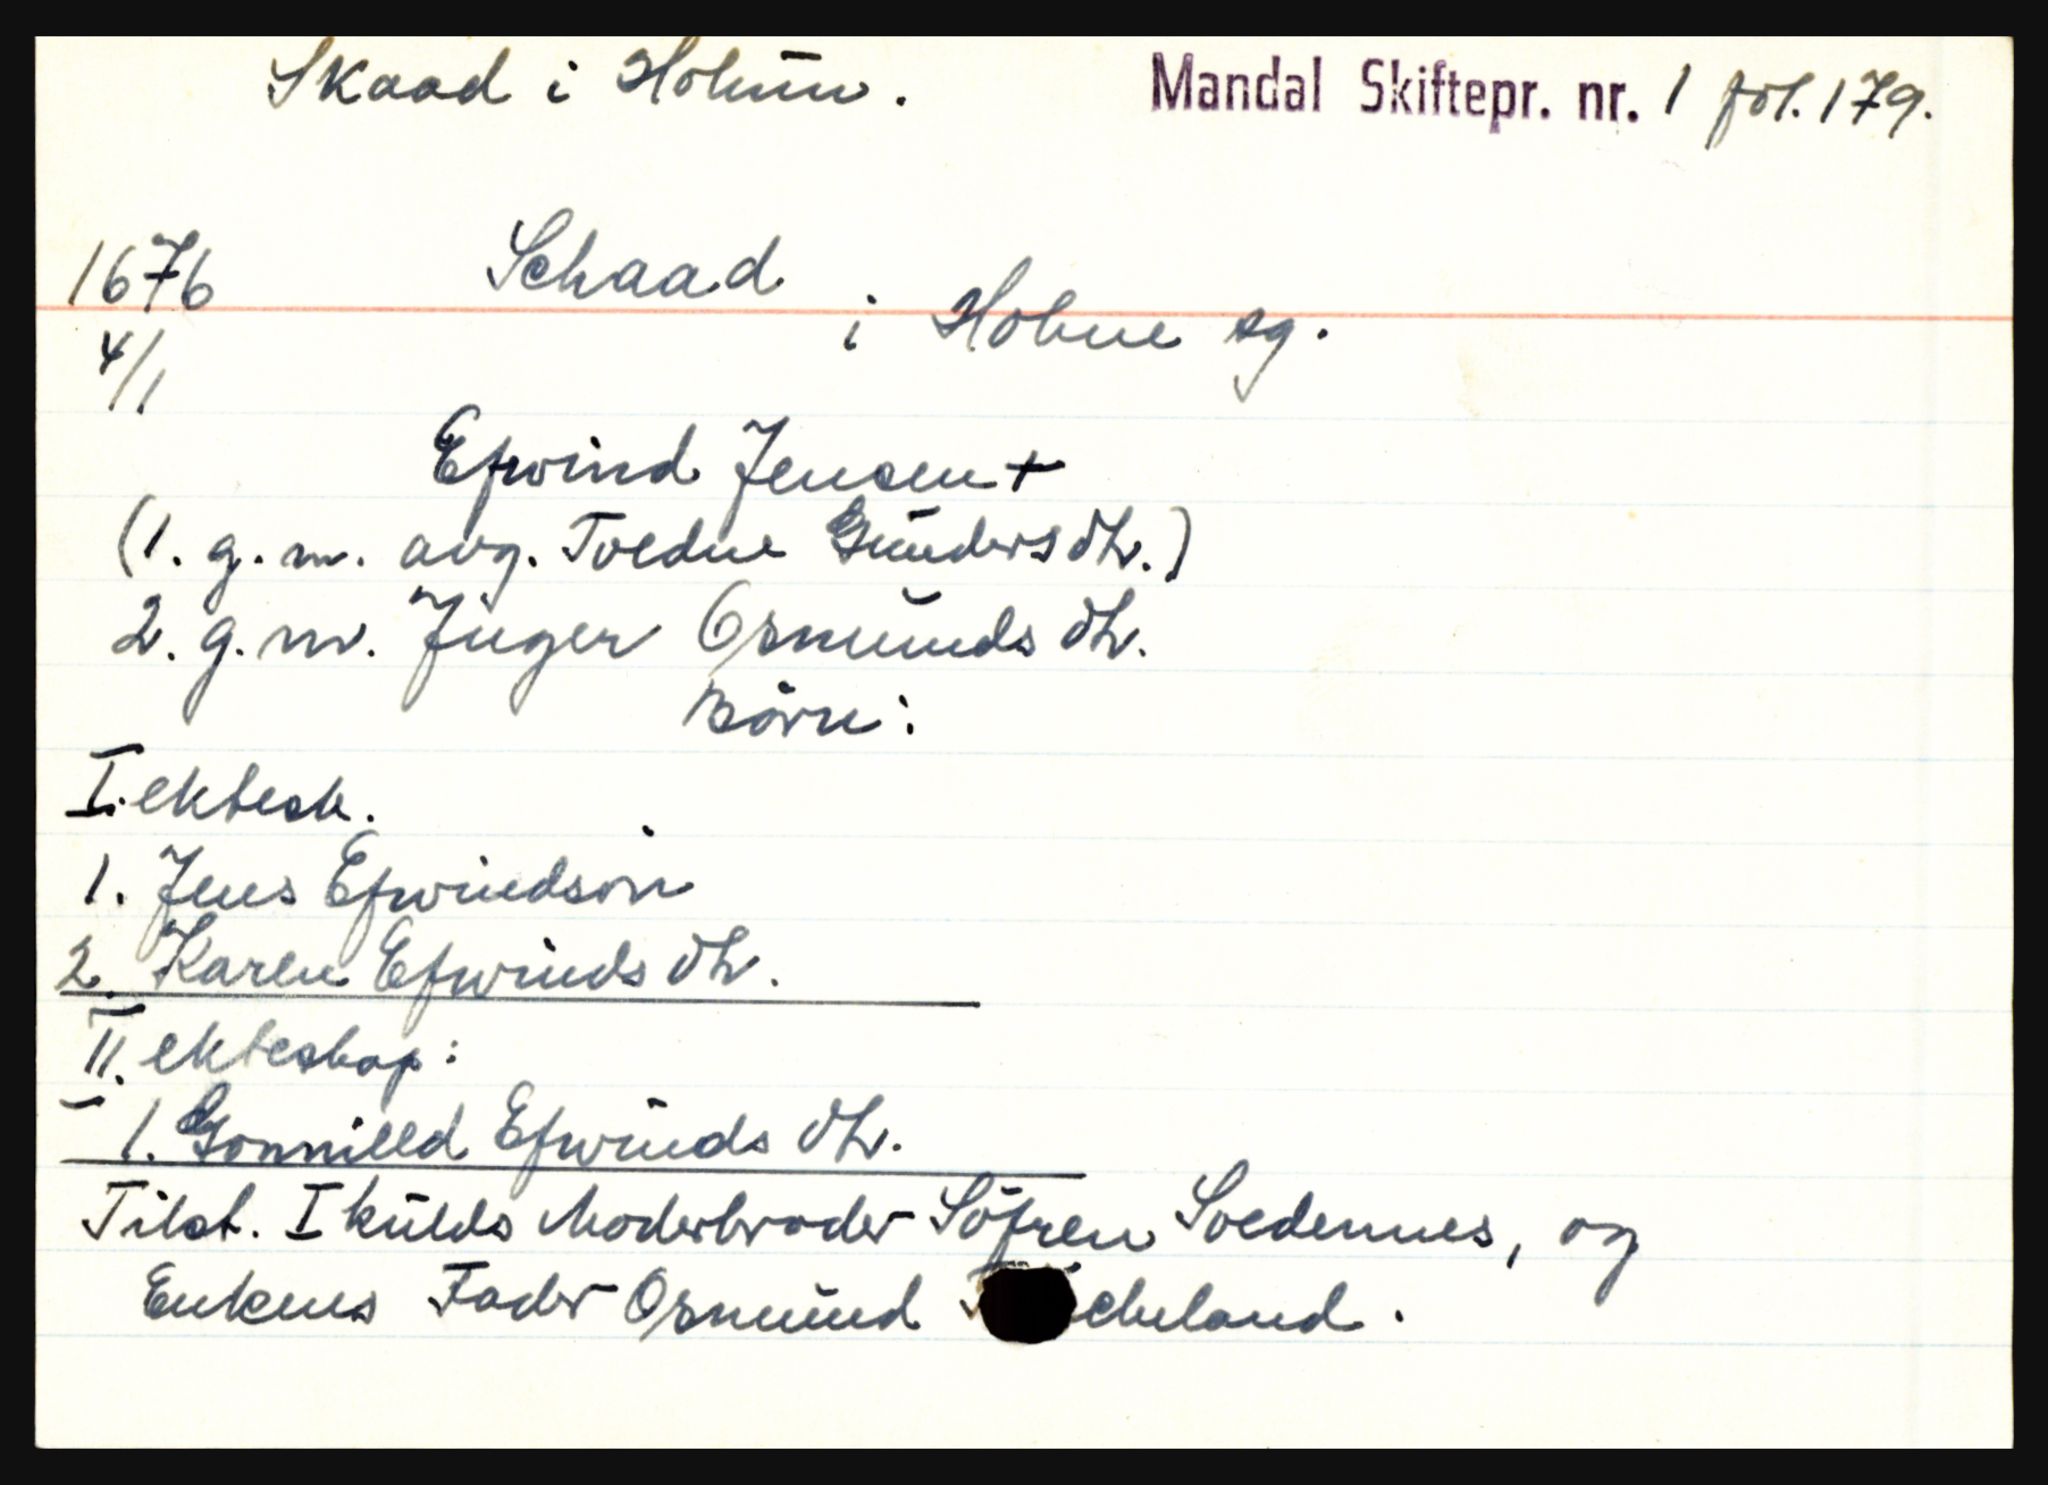 Skaad i Holum. Mandal Skiftepr. nr. 1 fol. 179.
1676 Schaad
4/1 i Holme sg.
Efwind Jensen +
(1. g. m. avg. Toedne Gündersdtr.)
2. g. m. Jnger Osmünds dtr.
Börn:
I. ektesk.
1. Jens Efwindsön
2. Karen Efwinds dtr.
II. ekteskap:
1. Gonnilld Efwinds dtr.
Tilst. I külds Moderbroder Söfren Soedennes, og
Enkens Fader Osmünd